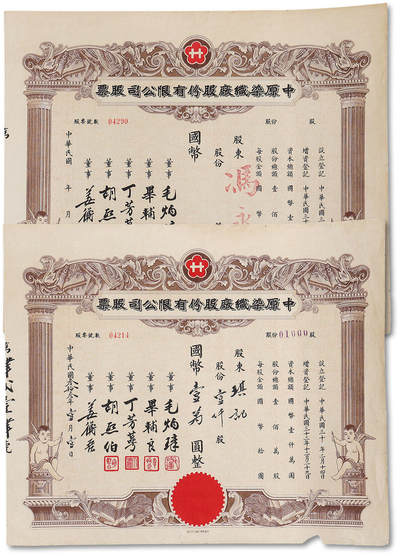 中原染織廠股份有限公司股票
股票號數 04290
股份 股
設立登記 中華民國三十
增資登記 中華民國三十
資本總額 國幣壹
股份總額 壹佰
每股金額 國幣
股東 馮永
股份
國幣
董事 毛炳
董事 畢輔
董事 丁芳
董事 胡
董事 姜
中華民國 年 月
中原染織廠股份有限公司股票
股票號數 04214
股份 01000 股
設立登記 中華民國三十年二月十四日
增資登記 中華民國三十二年十二月二十九日
資本總額 國幣壹仟萬圓
股份總額 壹佰萬股
每股金額 國幣拾圓
股東 琪記
股份 壹仟股
國幣壹萬圓整
董事 毛炳
董事 畢輔良
董事 丁芳
董事 胡 伯
董事 姜
中華民國 年壹月壹日